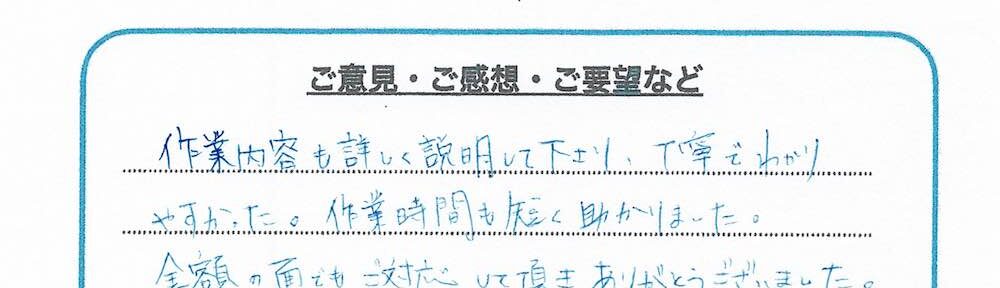 ご意見・ご感想・ご要望など
作業内容も詳しく説明して下さり、丁寧でわかり
やすかった。作業時間も短く助かりました。
金額の面でもご対応して頂きありがとうございました。